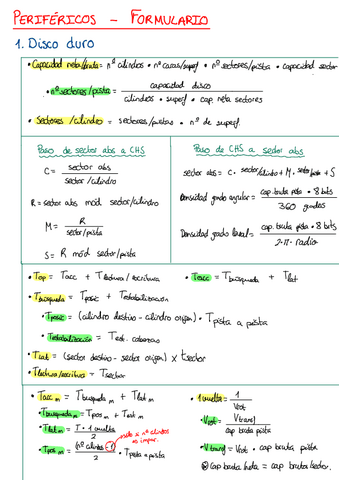 PERIFÉRICOS - FORMULARIO
1. Disco duro
• Capacidad neta/bruta = nº cilindros • nº caras/superf • nº sectores/pista • capacidad sector
• nº sectores/pista = capacidad disco / cilindros • superf • cap neta sectores
• Sectores /cilindro = sectores/pistas • nº de superf.
Paso de sector abs a CHS
C = sector abs / sector/cilindro
R = sector abs mód sector/cilindro
M = R / sector/pista
S = R mód sector/pista
Paso de CHS a sector abs
sector abs = C • sector/cilindro + M • sector/pista + S
Densidad grado angular = cap. bruta pista • 8 bits / 360 grados
Densidad grado lineal = cap. bruta pista • 8 bits / 2·π· radio
• Top = Tacc + Tlectura/escritura
• Tacc = Tbúsqueda + Tlat
• Tbúsqueda = Tposic + Testabilización
• Tposic = (cilindro destino - cilindro origen) • Tpista a pista
• Testabilización = Test. cabezas
• Tlat = (sector destino - sector origen) x tsector
• Tlectura/escritura = Tsector
• Tacc m = Tbusqueda m + Tlat m
• Tbusqueda m = Tpos m + Test m
• Tlat m = T • 1 vuelta / 2
• Tpos m = (nº cilindros - 1) / 2 • Tpista a pista
solo x nº cilindros es impar.
• 1 vuelta = 1 / Vrot
• Vrot = Vtransf / cap bruta pista
• Vtransf = Vrot • cap bruta pista